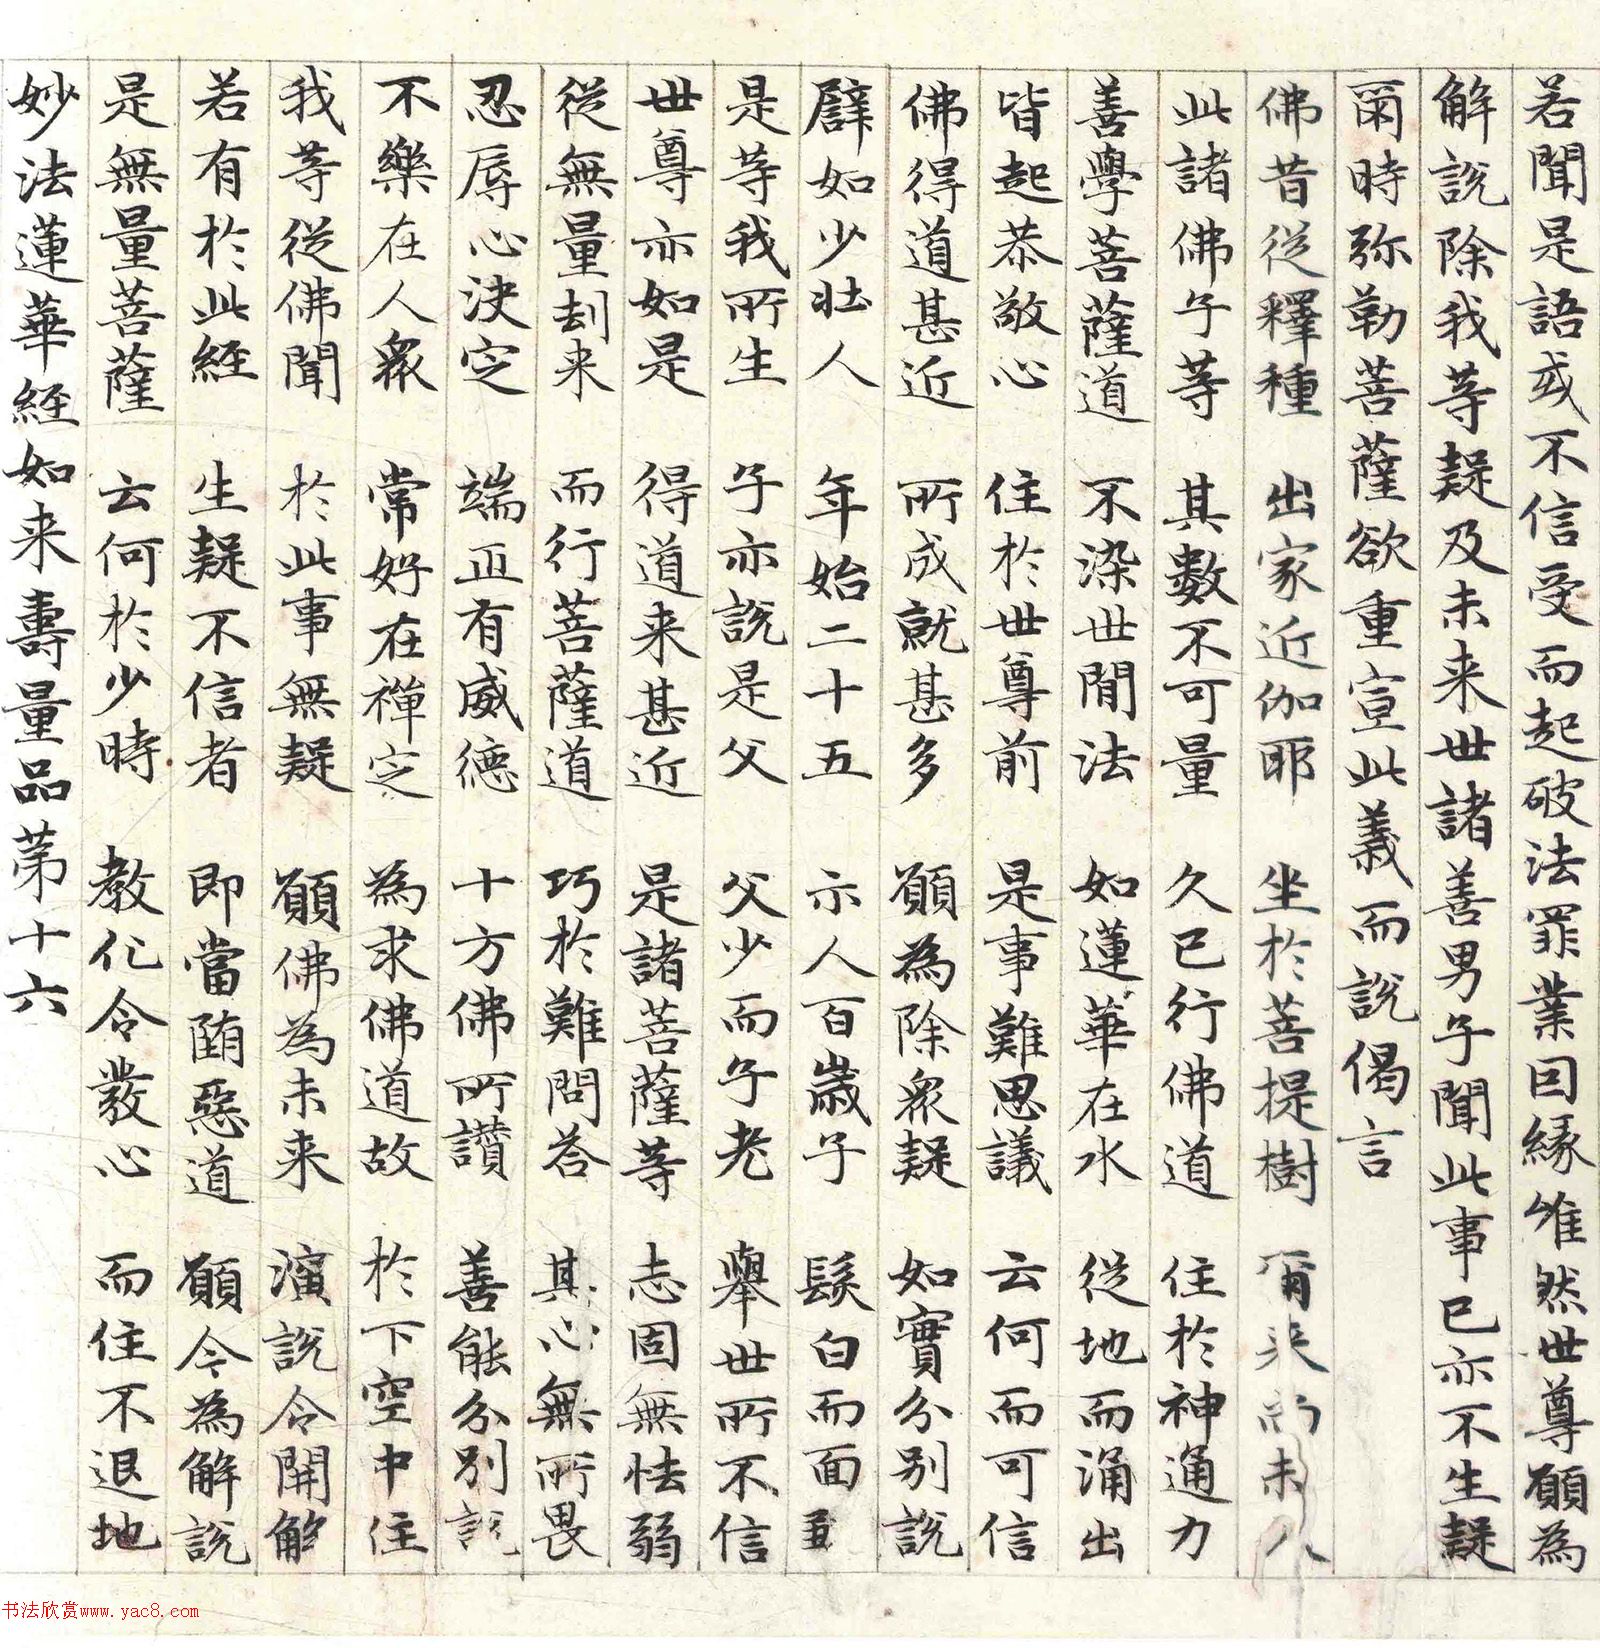 若聞是語或不信受而起破法罪業因緣唯然世尊願為
解說除我等疑及未来世諸善男子聞此事已亦不生疑
爾時弥勒菩薩欲重宣此義而說偈言
佛昔從釋種 出家近伽耶 坐於菩提樹 爾来尚未久
此諸佛子等 其數不可量 久已行佛道 住於神通力
善學菩薩道 不染世間法 如蓮華在水 從地而涌出
皆起恭敬心 住於世尊前 是事難思議 云何而可信
佛得道甚近 所成就甚多 願為除眾疑 如實分別說
譬如少壯人 年始二十五 示人百歲子 髮白而面
是等我所生 子亦說是父 父少而子老 舉世所不信
世尊亦如是 得道来甚近 是諸菩薩等 志固無怯弱
從無量劫来 而行菩薩道 巧於難問荅 其心無所畏
忍辱心決定 端正有威德 十方佛所讚 善能分別說
不樂在人眾 常好在禪定 為求佛道故 於下空中住
我等從佛聞 於此事無疑 願佛為未来 演說令開解
若有於此経 生疑不信者 即當墮惡道 願今為解說
是無量菩薩 云何於少時 教化令發心 而住不退地
妙法蓮華経如来壽量品第十六
书法欣赏www.yac8.com